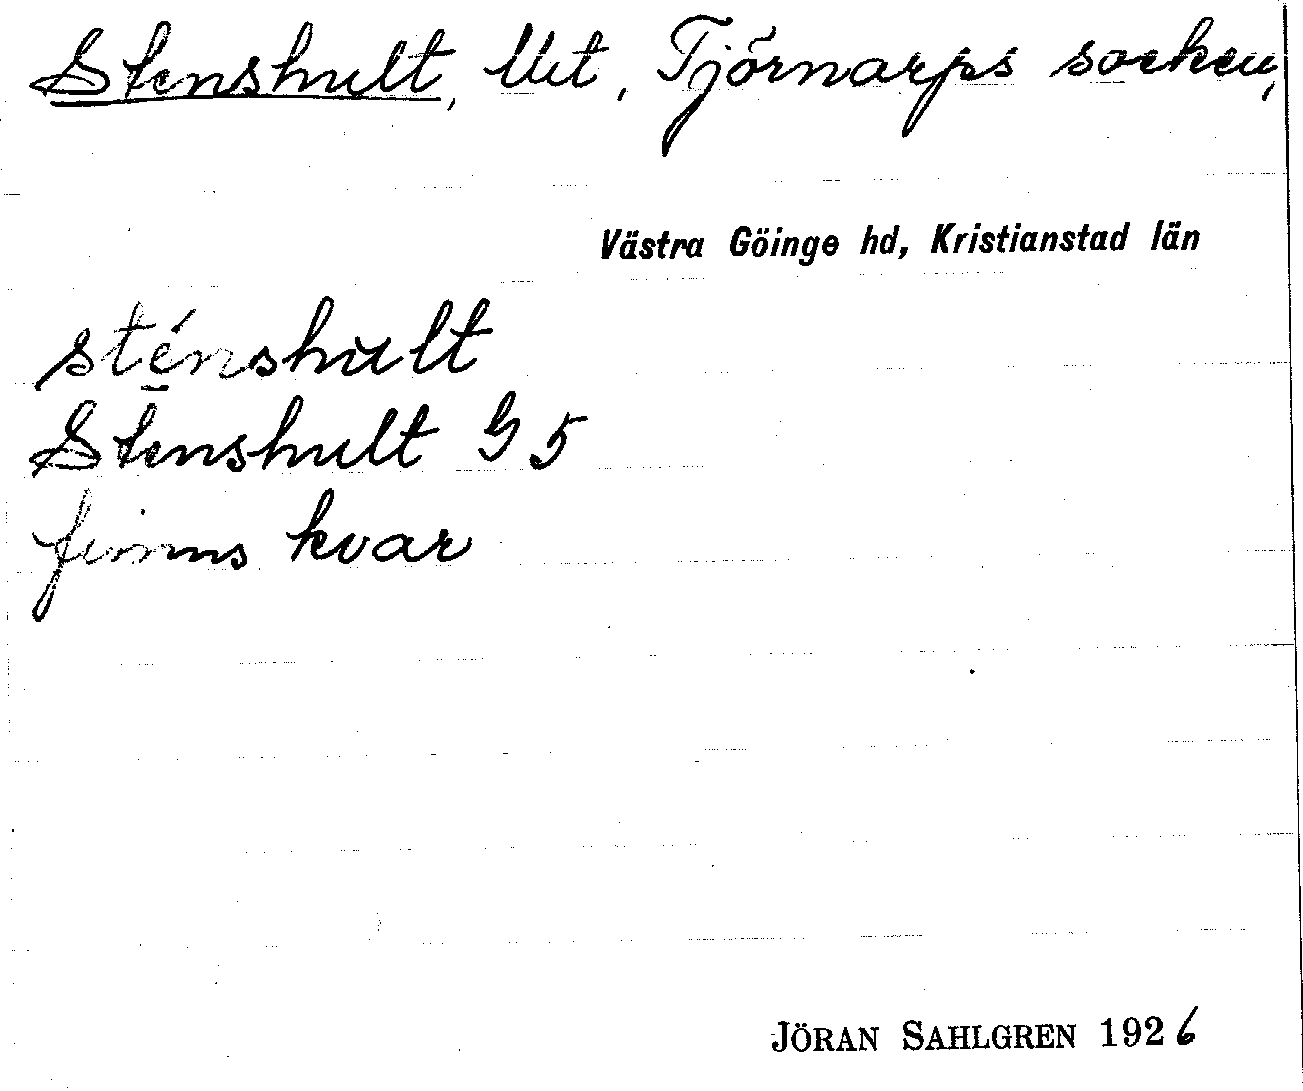 Stenshult, Utt, Tjörnarps socken,
Västra Göinge hd, Kristianstad län
sténshult
Stenshult G 5
finns kvar
JÖRAN SAHLGREN 1926